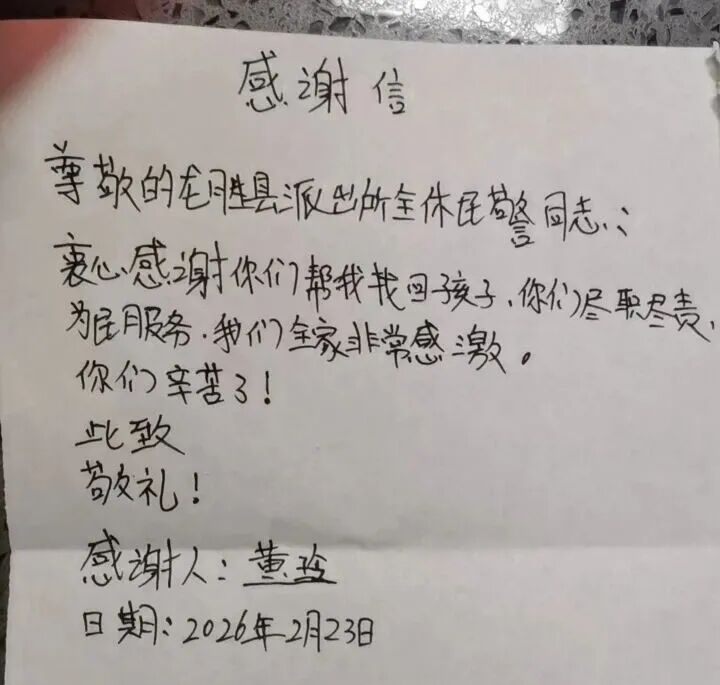 感谢信
尊敬的龙胜县派出所全体民警同志：
衷心感谢你们帮我找回孩子，你们尽职尽责，
为民服务，我们全家非常感激。
你们辛苦了！
此致
敬礼！
感谢人：黄玲
日期：2026年2月23日